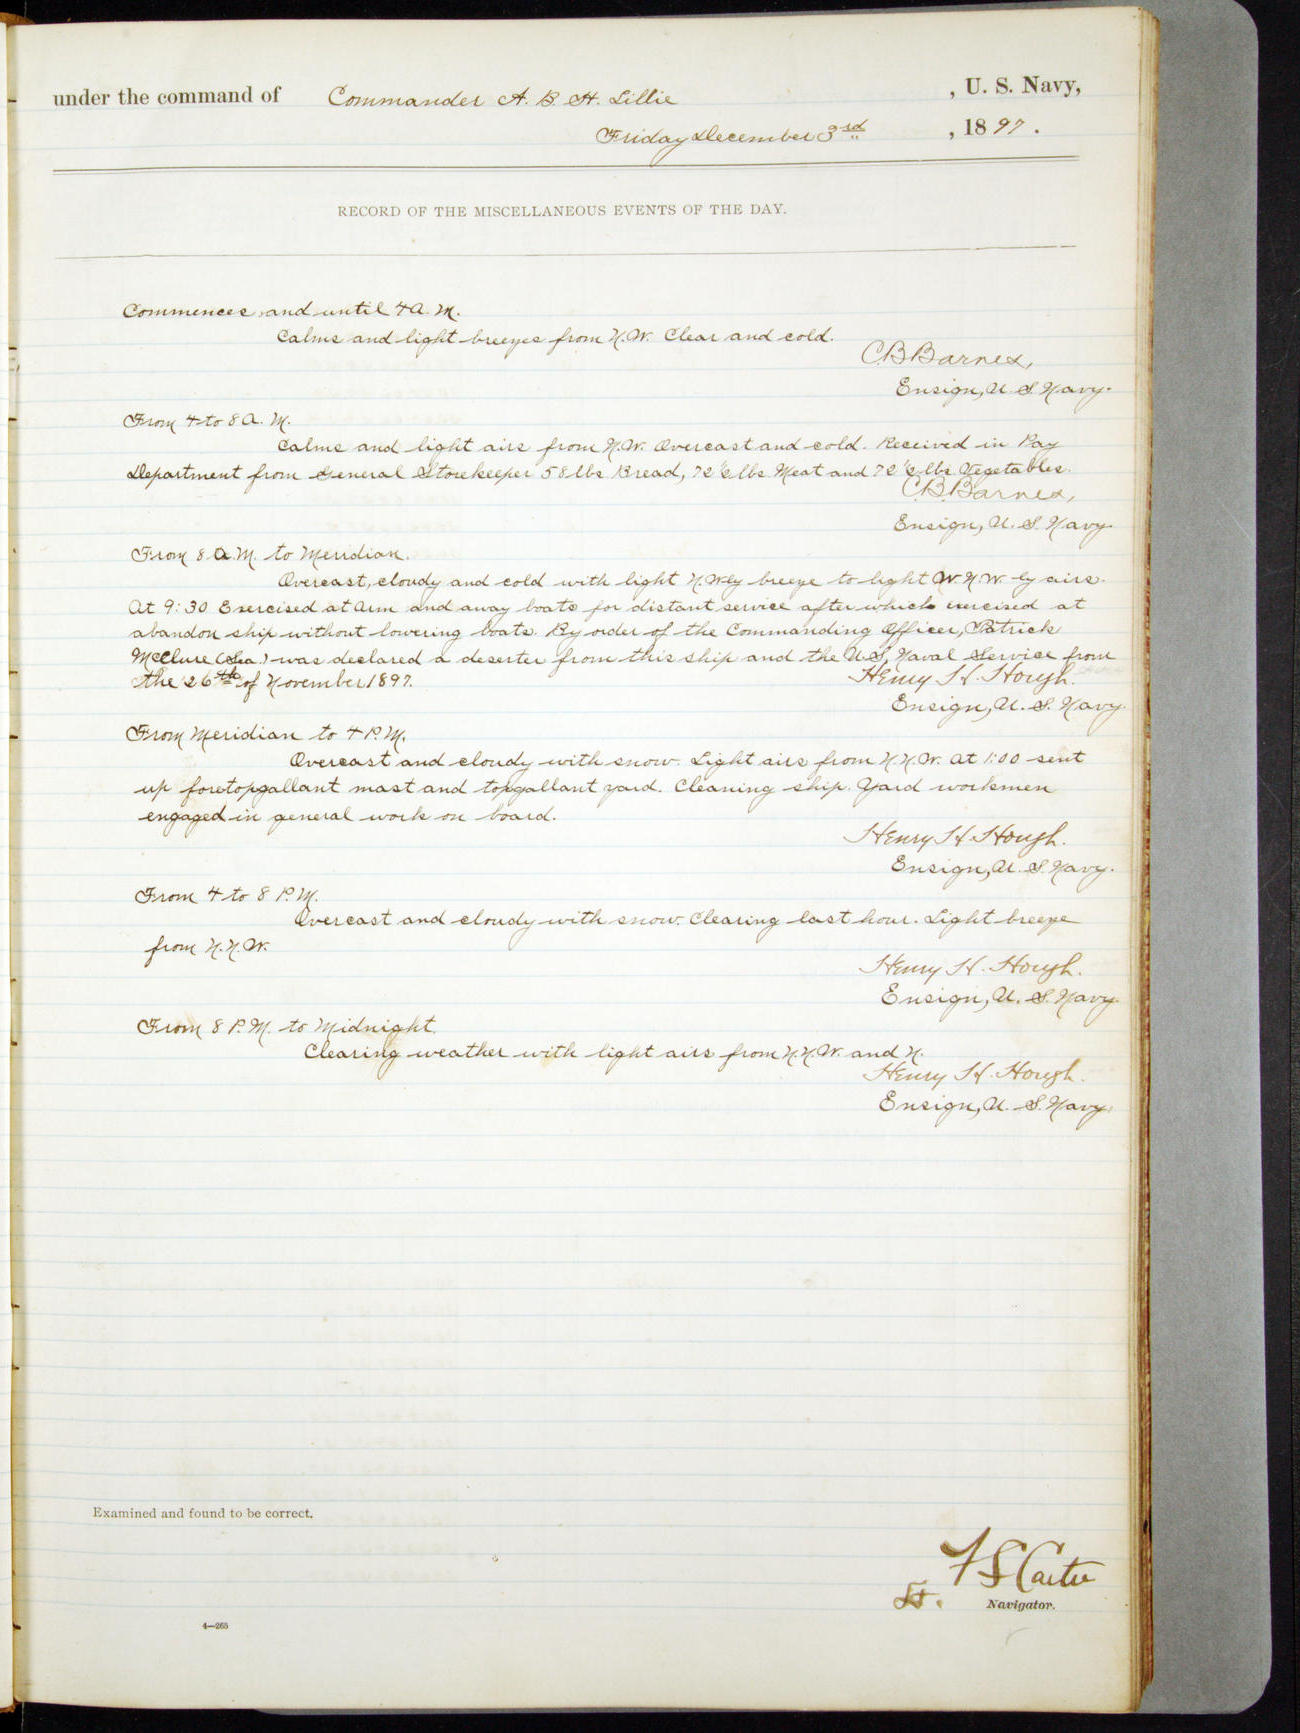 under the command of Commander A. B. H. Lillie, U. S. Navy,
Friday December 3rd, 1897.
RECORD OF THE MISCELLANEOUS EVENTS OF THE DAY.
Commences and until 4 A. M.
Calms and light breezes from N.W. Clear and cold.
C.B. Barnes,
Ensign, U. S. Navy.
From 4 to 8 A. M.
Calms and light airs from N.W. Overcast and cold. Received in Pay
Department from General Storekeeper 58 lbs Bread, 72½ lbs Meat and 72½ lbs Vegetables.
C.B. Barnes,
Ensign, U. S. Navy.
From 8 A.M. to Meridian.
Overcast, cloudy and cold with light N.W'ly breeze to light W.N.W.'ly airs.
At 9:30 Exercised at arm and away boats for distant service after which exercised at
abandon ship without lowering boats. By order of the Commanding Officer, Patrick
McClure (Sea.) was declared a deserter from this ship and the U.S. Naval Service from
the 26th of November 1897.
Henry H. Hough.
Ensign, U. S. Navy.
From Meridian to 4 P.M.
Overcast and cloudy with snow. Light airs from N.N.W. At 1:00 sent
up foretopgallant mast and topgallant yard. Cleaning ship. Yard workmen
engaged in general work on board.
Henry H. Hough.
Ensign, U. S. Navy.
From 4 to 8 P.M.
Overcast and cloudy with snow. Clearing last hour. Light breeze
from N.N.W.
Henry H. Hough.
Ensign, U. S. Navy.
From 8 P.M. to Midnight.
Clearing weather with light airs from N.N.W. and N.
Henry H. Hough.
Ensign, U. S. Navy.
Examined and found to be correct.
F S Carter
Lt. Navigator.
4—265